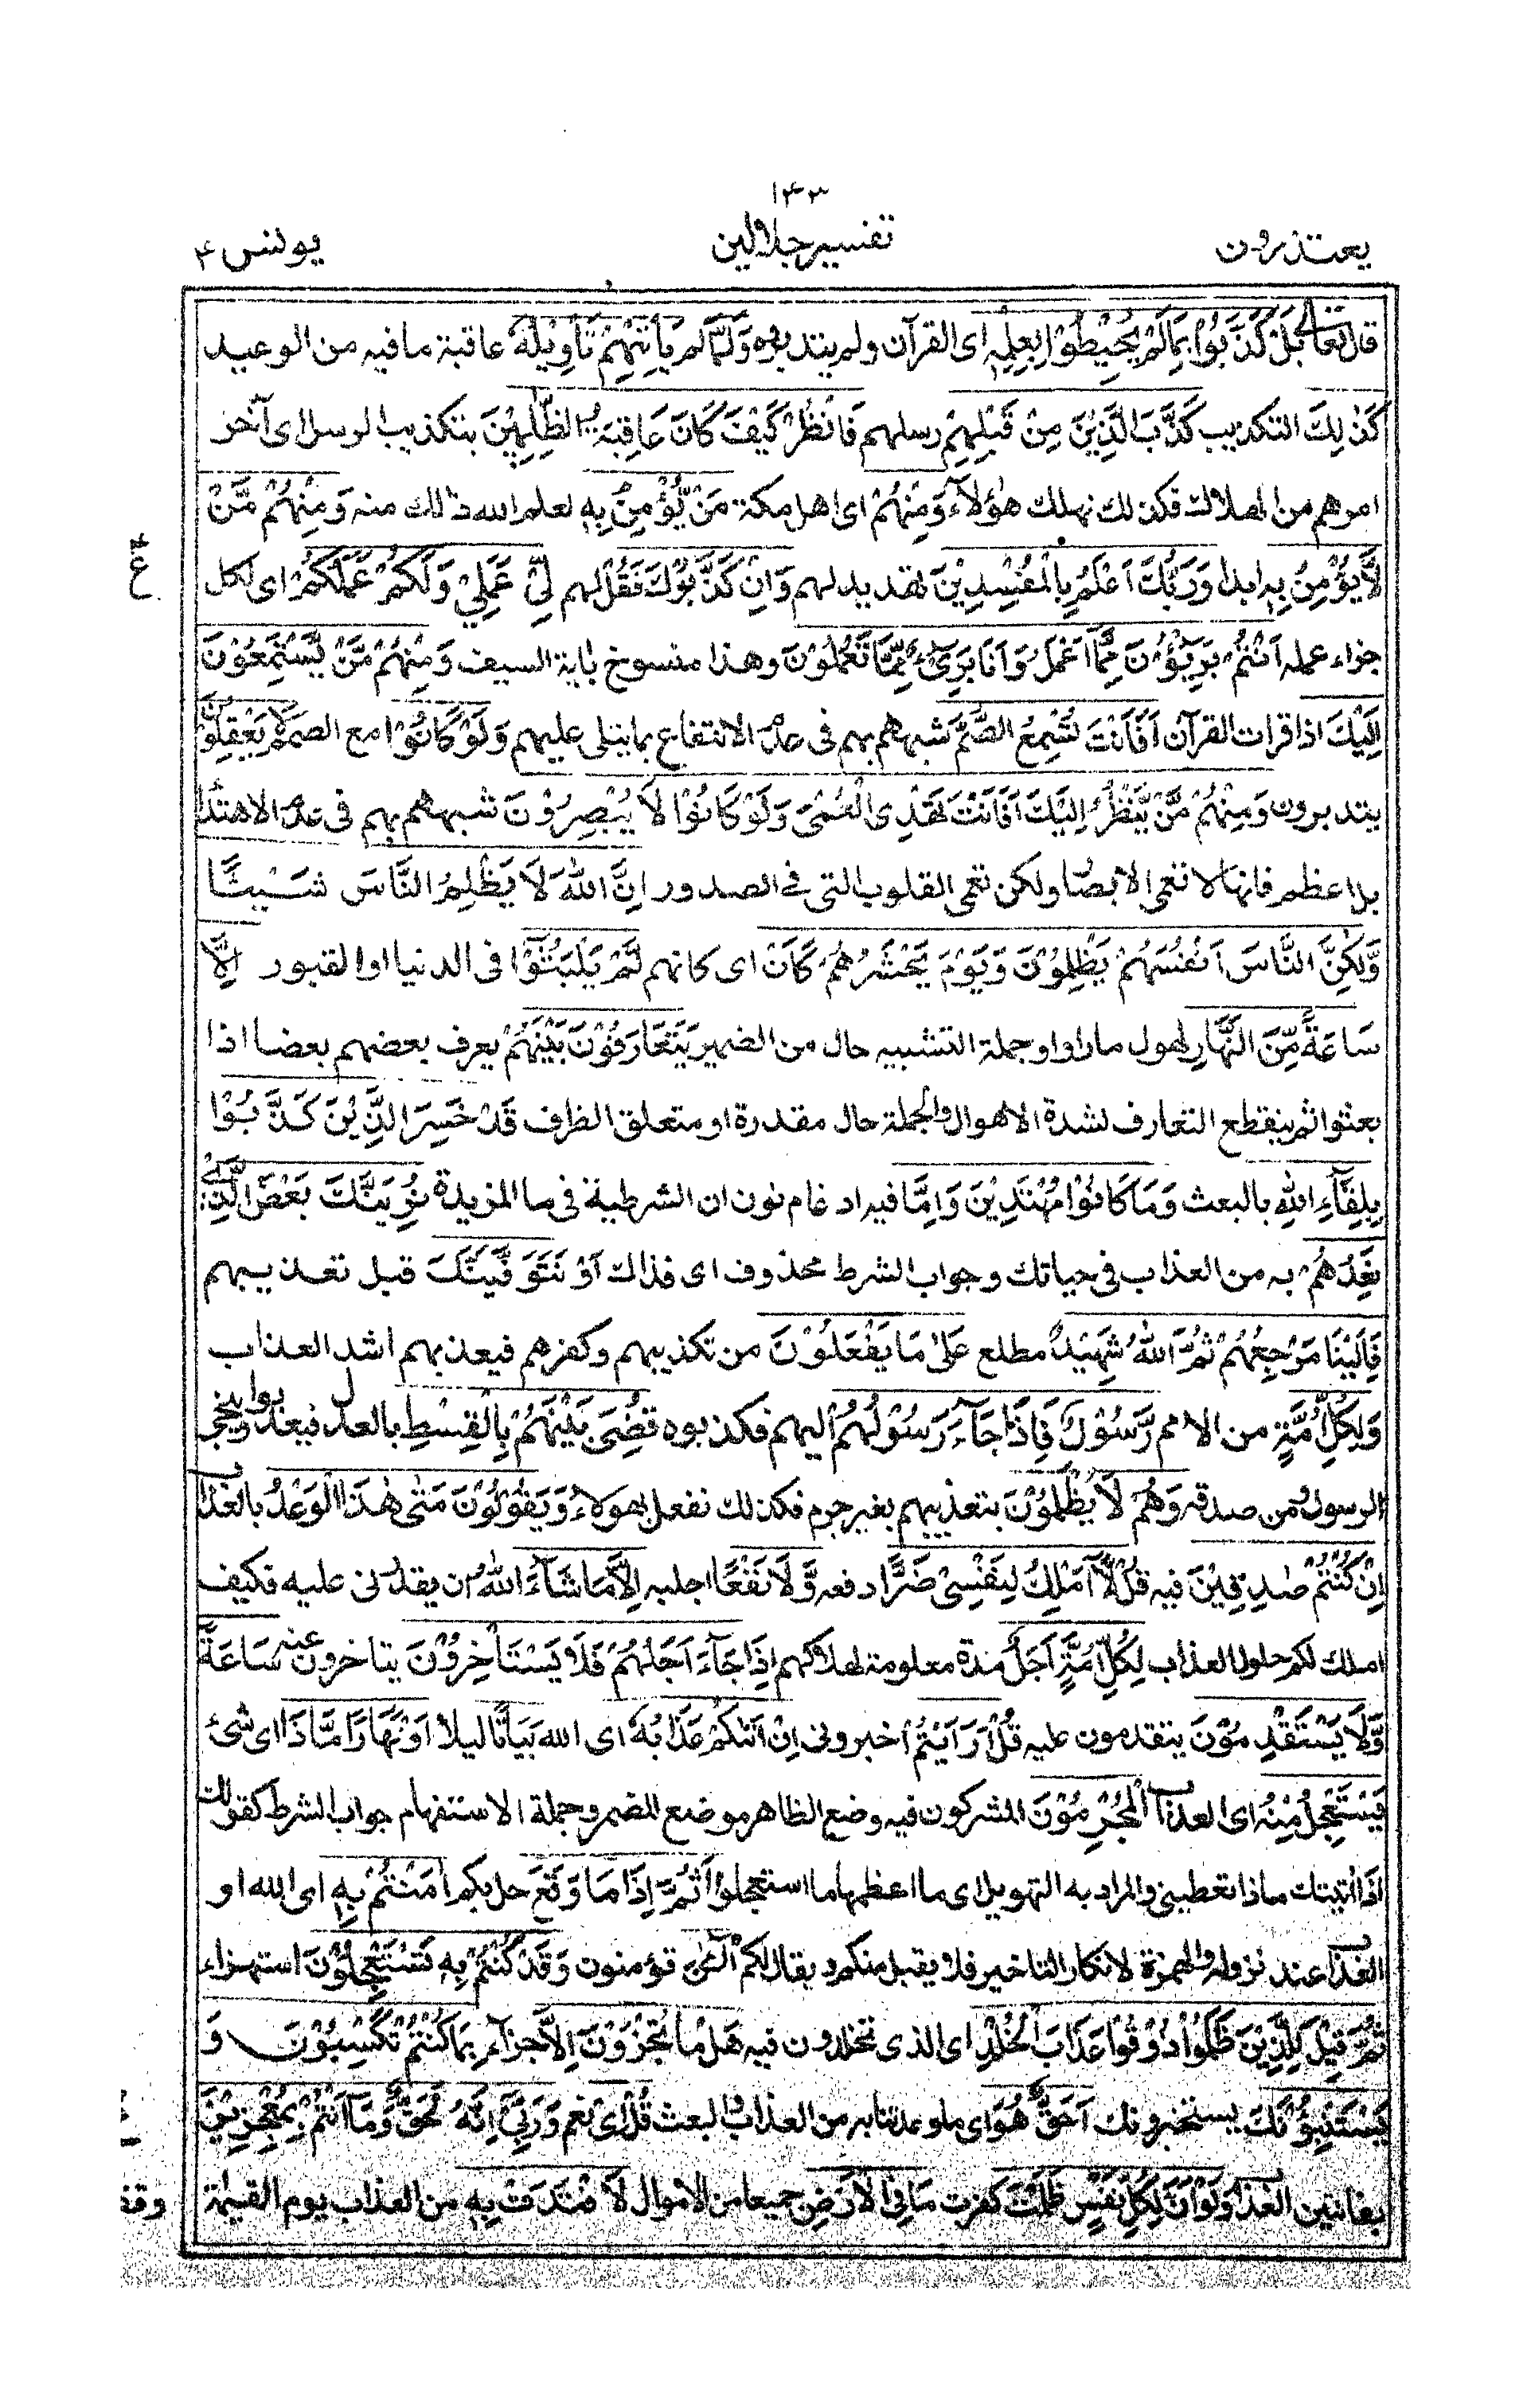 ۱۴۳
یعتذرون تفسیر جلالین یونس ۴
قال تعالى بَلْ كَذَّبُوْا بِمَا لَمْ يُحِيْطُوْا بِعِلْمِهٖ اى القرآن ولم يتدبروه وَلَمَّا لم يَأْتِهِمْ تَأْوِيْلُهٗ عاقبة ما فيه من الوعيد
كَذٰلِكَ التكذيب كَذَّبَ الَّذِيْنَ مِنْ قَبْلِهِمْ رسلهم فَانْظُرْ كَيْفَ كَانَ عَاقِبَةُ الظّٰلِمِيْنَ بتكذيب الرسل اى آخر
امرهم من الهلاك فكذلك نهلك هؤلاء وَمِنْهُمْ اى اهل مكة مَنْ يُّؤْمِنُ بِهٖ لعلم الله ذلك منه وَمِنْهُمْ مَّنْ
لَّا يُؤْمِنُ بِهٖ ابدا وَرَبُّكَ اَعْلَمُ بِالْمُفْسِدِيْنَ تهديد لهم وَاِنْ كَذَّبُوْكَ فَقُلْ لهم لِّيْ عَمَلِيْ وَلَكُمْ عَمَلُكُمْ اى لكل
جزاء عمله اَنْتُمْ بَرِيْٓئُوْنَ مِمَّا اَعْمَلُ وَاَنَا بَرِيْٓءٌ مِّمَّا تَعْمَلُوْنَ وهذا منسوخ باية السيف وَمِنْهُمْ مَّنْ يَّسْتَمِعُوْنَ
اِلَيْكَ اذا قرات القرآن اَفَاَنْتَ تُسْمِعُ الصُّمَّ شبههم بهم فى عدم الانتفاع بما يتلى عليهم وَلَوْ كَانُوْا مع الصمم لَا يَعْقِلُوْنَ
يتدبرون وَمِنْهُمْ مَّنْ يَّنْظُرُ اِلَيْكَ اَفَاَنْتَ تَهْدِى الْعُمْىَ وَلَوْ كَانُوْا لَا يُبْصِرُوْنَ شبههم بهم فى عدم الاهتداء
بل اعظم فانها لا تعمى الابصار ولكن تعمى القلوب التى فى الصدور اِنَّ اللهَ لَا يَظْلِمُ النَّاسَ شَيْئًا
وَّلٰكِنَّ النَّاسَ اَنْفُسَهُمْ يَظْلِمُوْنَ وَيَوْمَ يَحْشُرُهُمْ كَاَنْ اى كانهم لَّمْ يَلْبَثُوْٓا فى الدنيا او القبور اِلَّا
سَاعَةً مِّنَ النَّهَارِ لهول ما راوا وجملة التشبيه حال من الضمير يَتَعَارَفُوْنَ بَيْنَهُمْ يعرف بعضهم بعضا اذا
بعثوا ثم ينقطع التعارف لشدة الاهوال والجملة حال مقدرة او متعلق الظرف قَدْ خَسِرَ الَّذِيْنَ كَذَّبُوْا
بِلِقَآءِ اللهِ بالبعث وَمَا كَانُوْا مُهْتَدِيْنَ وَاِمَّا فيه ادغام نون ان الشرطية فى ما المزيدة نُرِيَنَّكَ بَعْضَ الَّذِيْ
نَعِدُهُمْ به من العذاب فى حياتك وجواب الشرط محذوف اى فذاك اَوْ نَتَوَفَّيَنَّكَ قبل تعذيبهم
فَاِلَيْنَا مَرْجِعُهُمْ ثُمَّ اللهُ شَهِيْدٌ مطلع عَلٰى مَا يَفْعَلُوْنَ من تكذيبهم وكفرهم فيعذبهم اشد العذاب
وَلِكُلِّ اُمَّةٍ من الامم رَّسُوْلٌ فَاِذَا جَآءَ رَسُوْلُهُمْ اليهم فكذبوه قُضِىَ بَيْنَهُمْ بِالْقِسْطِ بالعدل فيعذبوا وينجى
الرسول ومن صدقه وَهُمْ لَا يُظْلَمُوْنَ بتعذيبهم بغير جرم فكذلك نفعل بهولاء وَيَقُوْلُوْنَ مَتٰى هٰذَا الْوَعْدُ بالعذاب
اِنْ كُنْتُمْ صٰدِقِيْنَ فيه قُلْ لَّآ اَمْلِكُ لِنَفْسِيْ ضَرًّا دفعه وَّلَا نَفْعًا اجلبه اِلَّا مَا شَآءَ اللهُ ان يقدرنى عليه فكيف
املك لكم حلول العذاب لِكُلِّ اُمَّةٍ اَجَلٌ مدة معلومة لهلاكهم اِذَا جَآءَ اَجَلُهُمْ فَلَا يَسْتَاْخِرُوْنَ يتاخرون عنه سَاعَةً
وَّلَا يَسْتَقْدِمُوْنَ يتقدمون عليه قُلْ اَرَاَيْتُمْ اخبرونى اِنْ اَتٰىكُمْ عَذَابُهٗ اى الله بَيَاتًا ليلا اَوْ نَهَارًا مَّاذَا اى شئ
يَسْتَعْجِلُ مِنْهُ اى العذاب الْمُجْرِمُوْنَ المشركون فيه وضع الظاهر موضع المضمر وجملة الاستفهام جواب الشرط كقولك
اذا اتيتك ماذا تعطينى والمراد به التهويل اى ما اعظم ما استعجلوا اَثُمَّ اِذَا مَا وَقَعَ حل بكم اٰمَنْتُمْ بِهٖ اى الله او
العذاب عند نزوله والهمزة لانكار التاخير فلا يقبل منكم ويقال لكم آٰلْـٰٔنَ تؤمنون وَقَدْ كُنْتُمْ بِهٖ تَسْتَعْجِلُوْنَ استهزاء
ثُمَّ قِيْلَ لِلَّذِيْنَ ظَلَمُوْا ذُوْقُوْا عَذَابَ الْخُلْدِ اى الذى تخلدون فيه هَلْ ما تُجْزَوْنَ اِلَّا جزاء بِمَا كُنْتُمْ تَكْسِبُوْنَ وَ
يَسْتَنْبِئُوْنَكَ يستخبرونك اَحَقٌّ هُوَ اى ما وعدتنا به من العذاب والبعث قُلْ اِىْ نعم وَرَبِّيْٓ اِنَّهٗ لَحَقٌّ وَمَآ اَنْتُمْ بِمُعْجِزِيْنَ
بفائتين العذاب وَلَوْ اَنَّ لِكُلِّ نَفْسٍ ظَلَمَتْ كفرت مَا فِى الْاَرْضِ جميعا من الاموال لَافْتَدَتْ بِهٖ من العذاب يوم القيٰمة